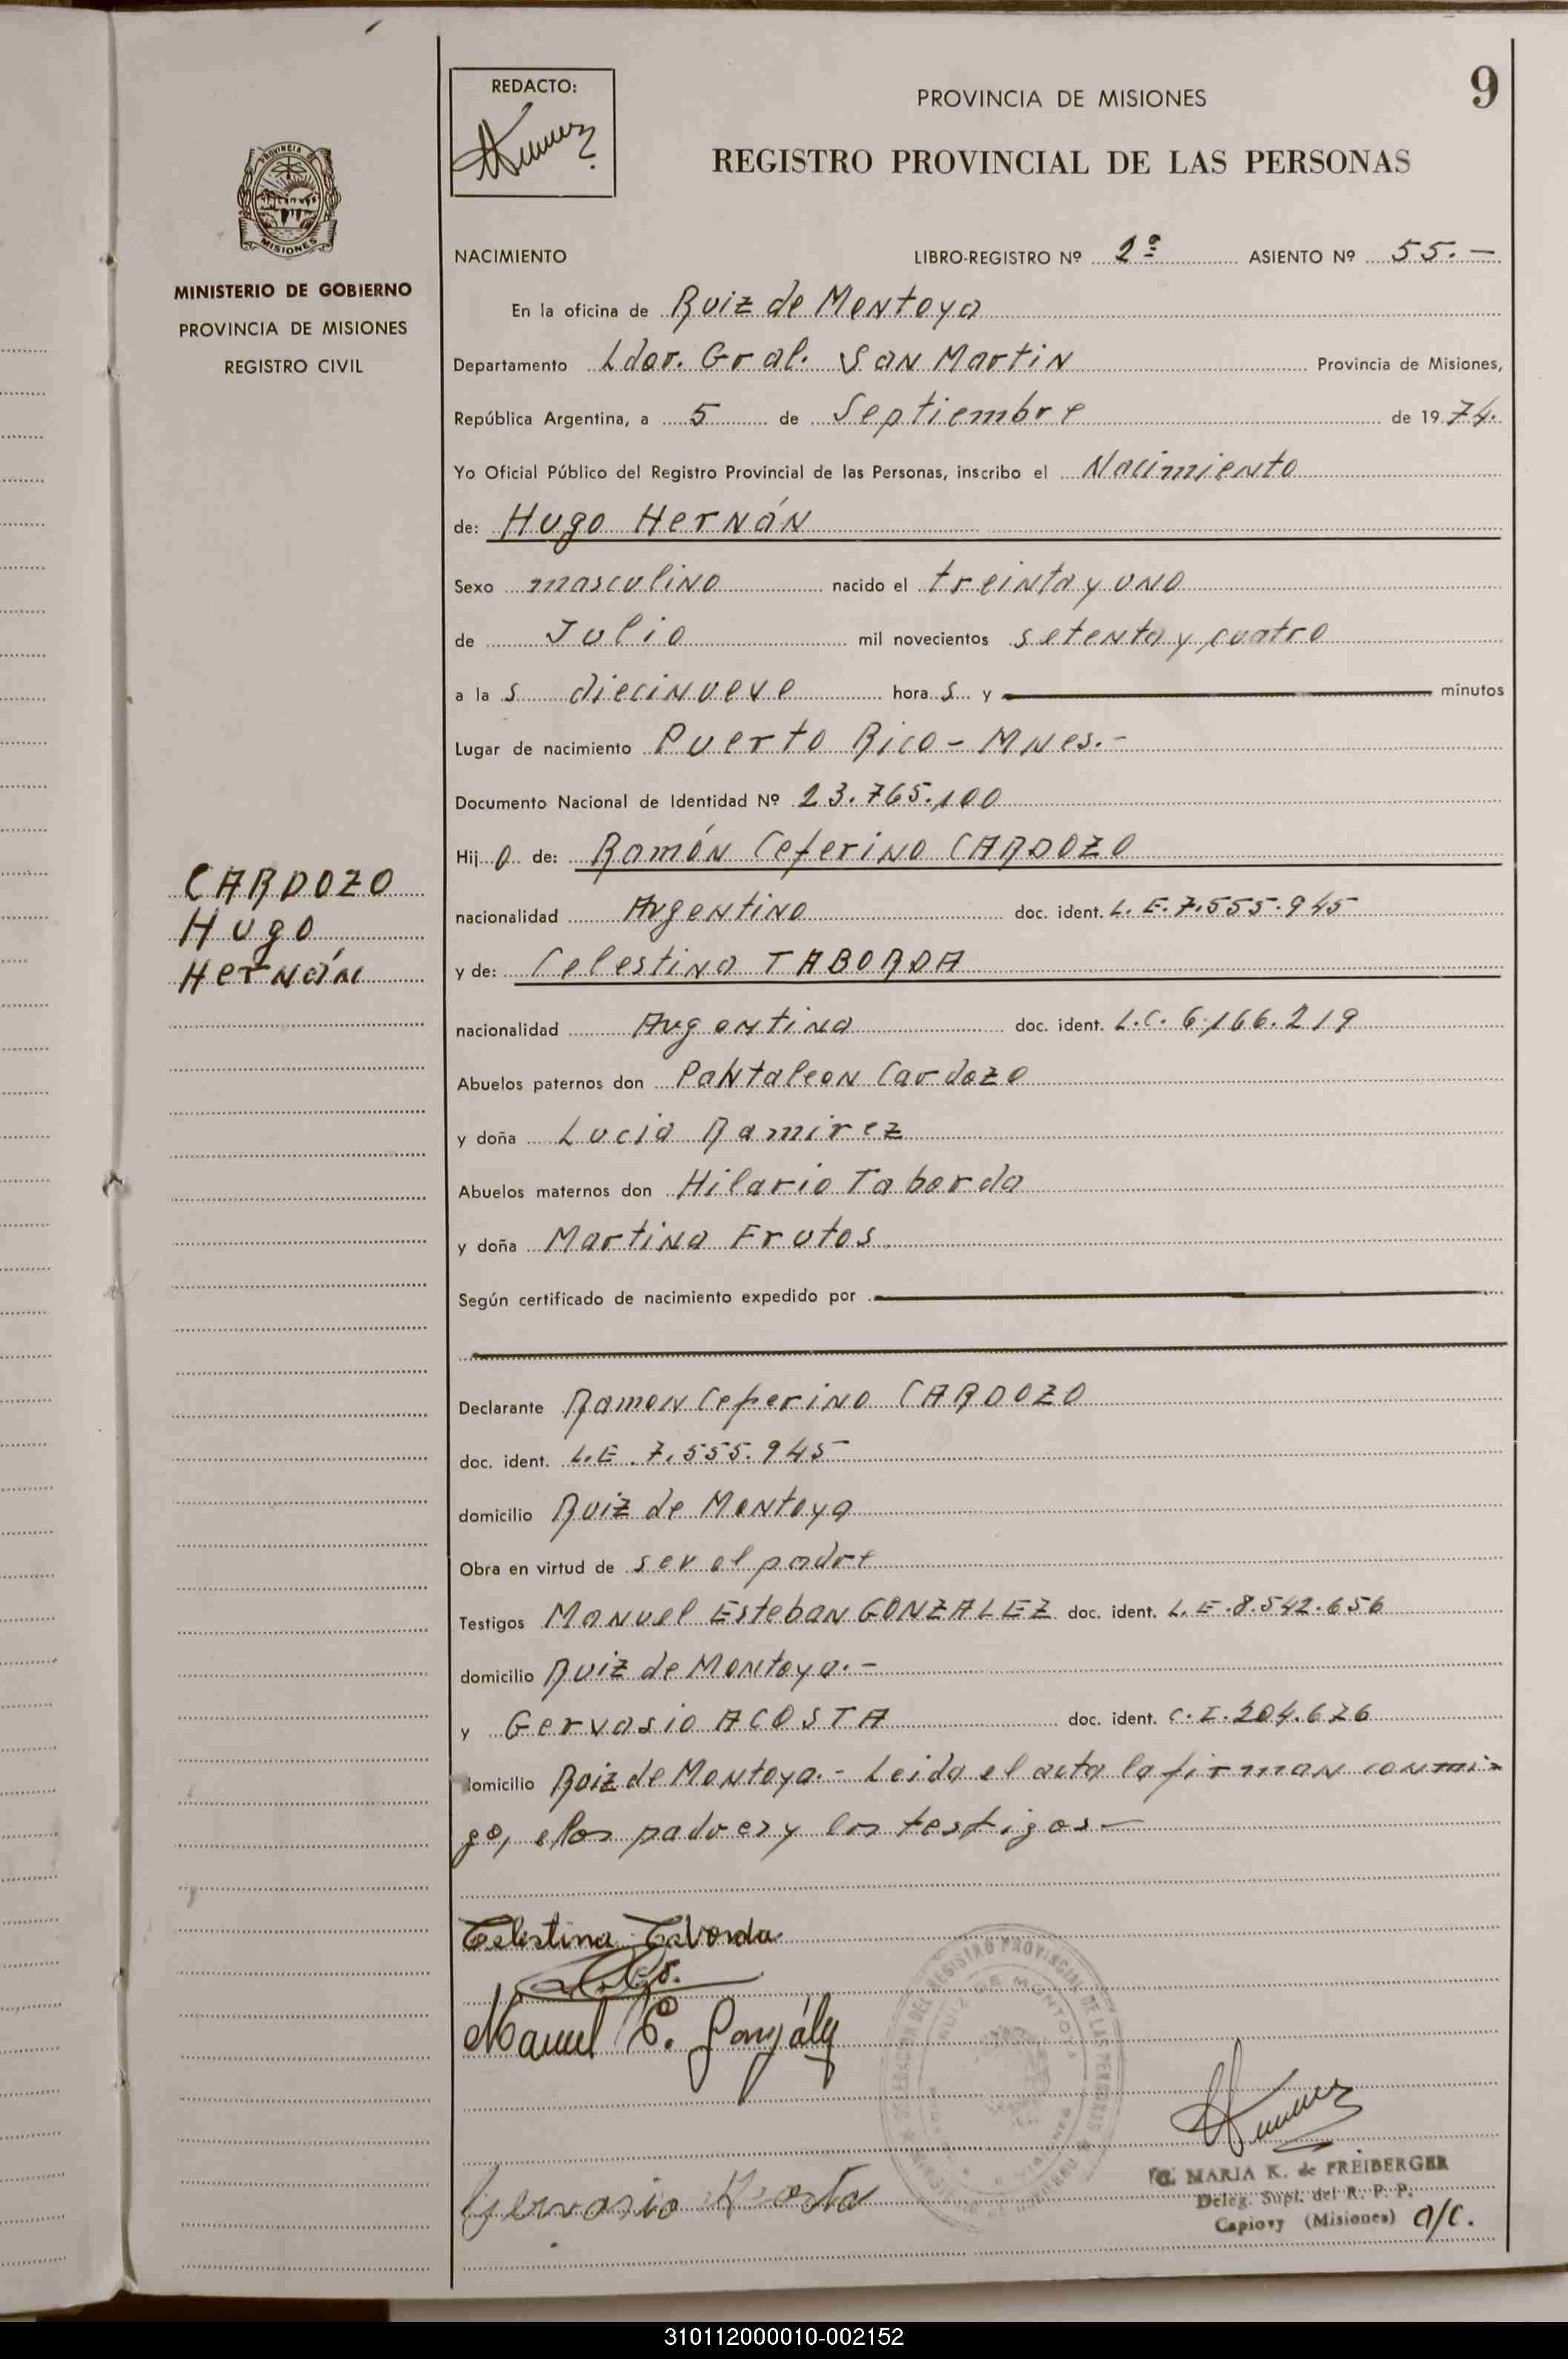 REDACTO:
PROVINCIA DE MISIONES
9
REGISTRO PROVINCIAL DE LAS PERSONAS
PROVINCIA
MISIONES
MINISTERIO DE GOBIERNO
PROVINCIA DE MISIONES
REGISTRO CIVIL
NACIMIENTO LIBRO-REGISTRO Nº 2º ASIENTO Nº 55.-
En la oficina de Ruiz de Montoya
Departamento Ldor. Gral. San Martin Provincia de Misiones,
República Argentina, a 5 de Septiembre de 1974.
Yo Oficial Público del Registro Provincial de las Personas, inscribo el Nacimiento
de: Hugo Hernán
Sexo masculino nacido el treinta y uno
de Julio mil novecientos setenta y cuatro
a las diecinueve horas y minutos
Lugar de nacimiento Puerto Rico - Mnes.-
Documento Nacional de Identidad Nº 23.765.100
Hijo de: Ramón Ceferino CARDOZO
CARDOZO
Hugo
Hernán
nacionalidad Argentino doc. ident. L.E. 7.555.945
y de: Celestina TABORDA
nacionalidad Argentina doc. ident. L.C. 6.166.219
Abuelos paternos don Pantaleon Cardozo
y doña Lucia Ramirez
Abuelos maternos don Hilario Taborda
y doña Martina Frutos
Según certificado de nacimiento expedido por
Declarante Ramon Ceferino CARDOZO
doc. ident. L.E. 7.555.945
domicilio Ruiz de Montoya
Obra en virtud de ser el padre
Testigos Manuel Esteban GONZALEZ doc. ident. L.E. 8.542.656
domicilio Ruiz de Montoya.-
y Gervasio ACOSTA doc. ident. C.I. 204.626
domicilio Ruiz de Montoya.- Leida el acta la firman conmi-
go, los padres y los testigos-
Celestina Tavorda
Manuel E. González
REGISTRO PROVINCIAL DE LAS PERSONAS
RUIZ DE MONTOYA
Gervasio Acosta
G. MARIA K. de FREIBERGER
Deleg. Supl. del R. P. P.
Capiovy (Misiones) a/c.
310112000010-002152